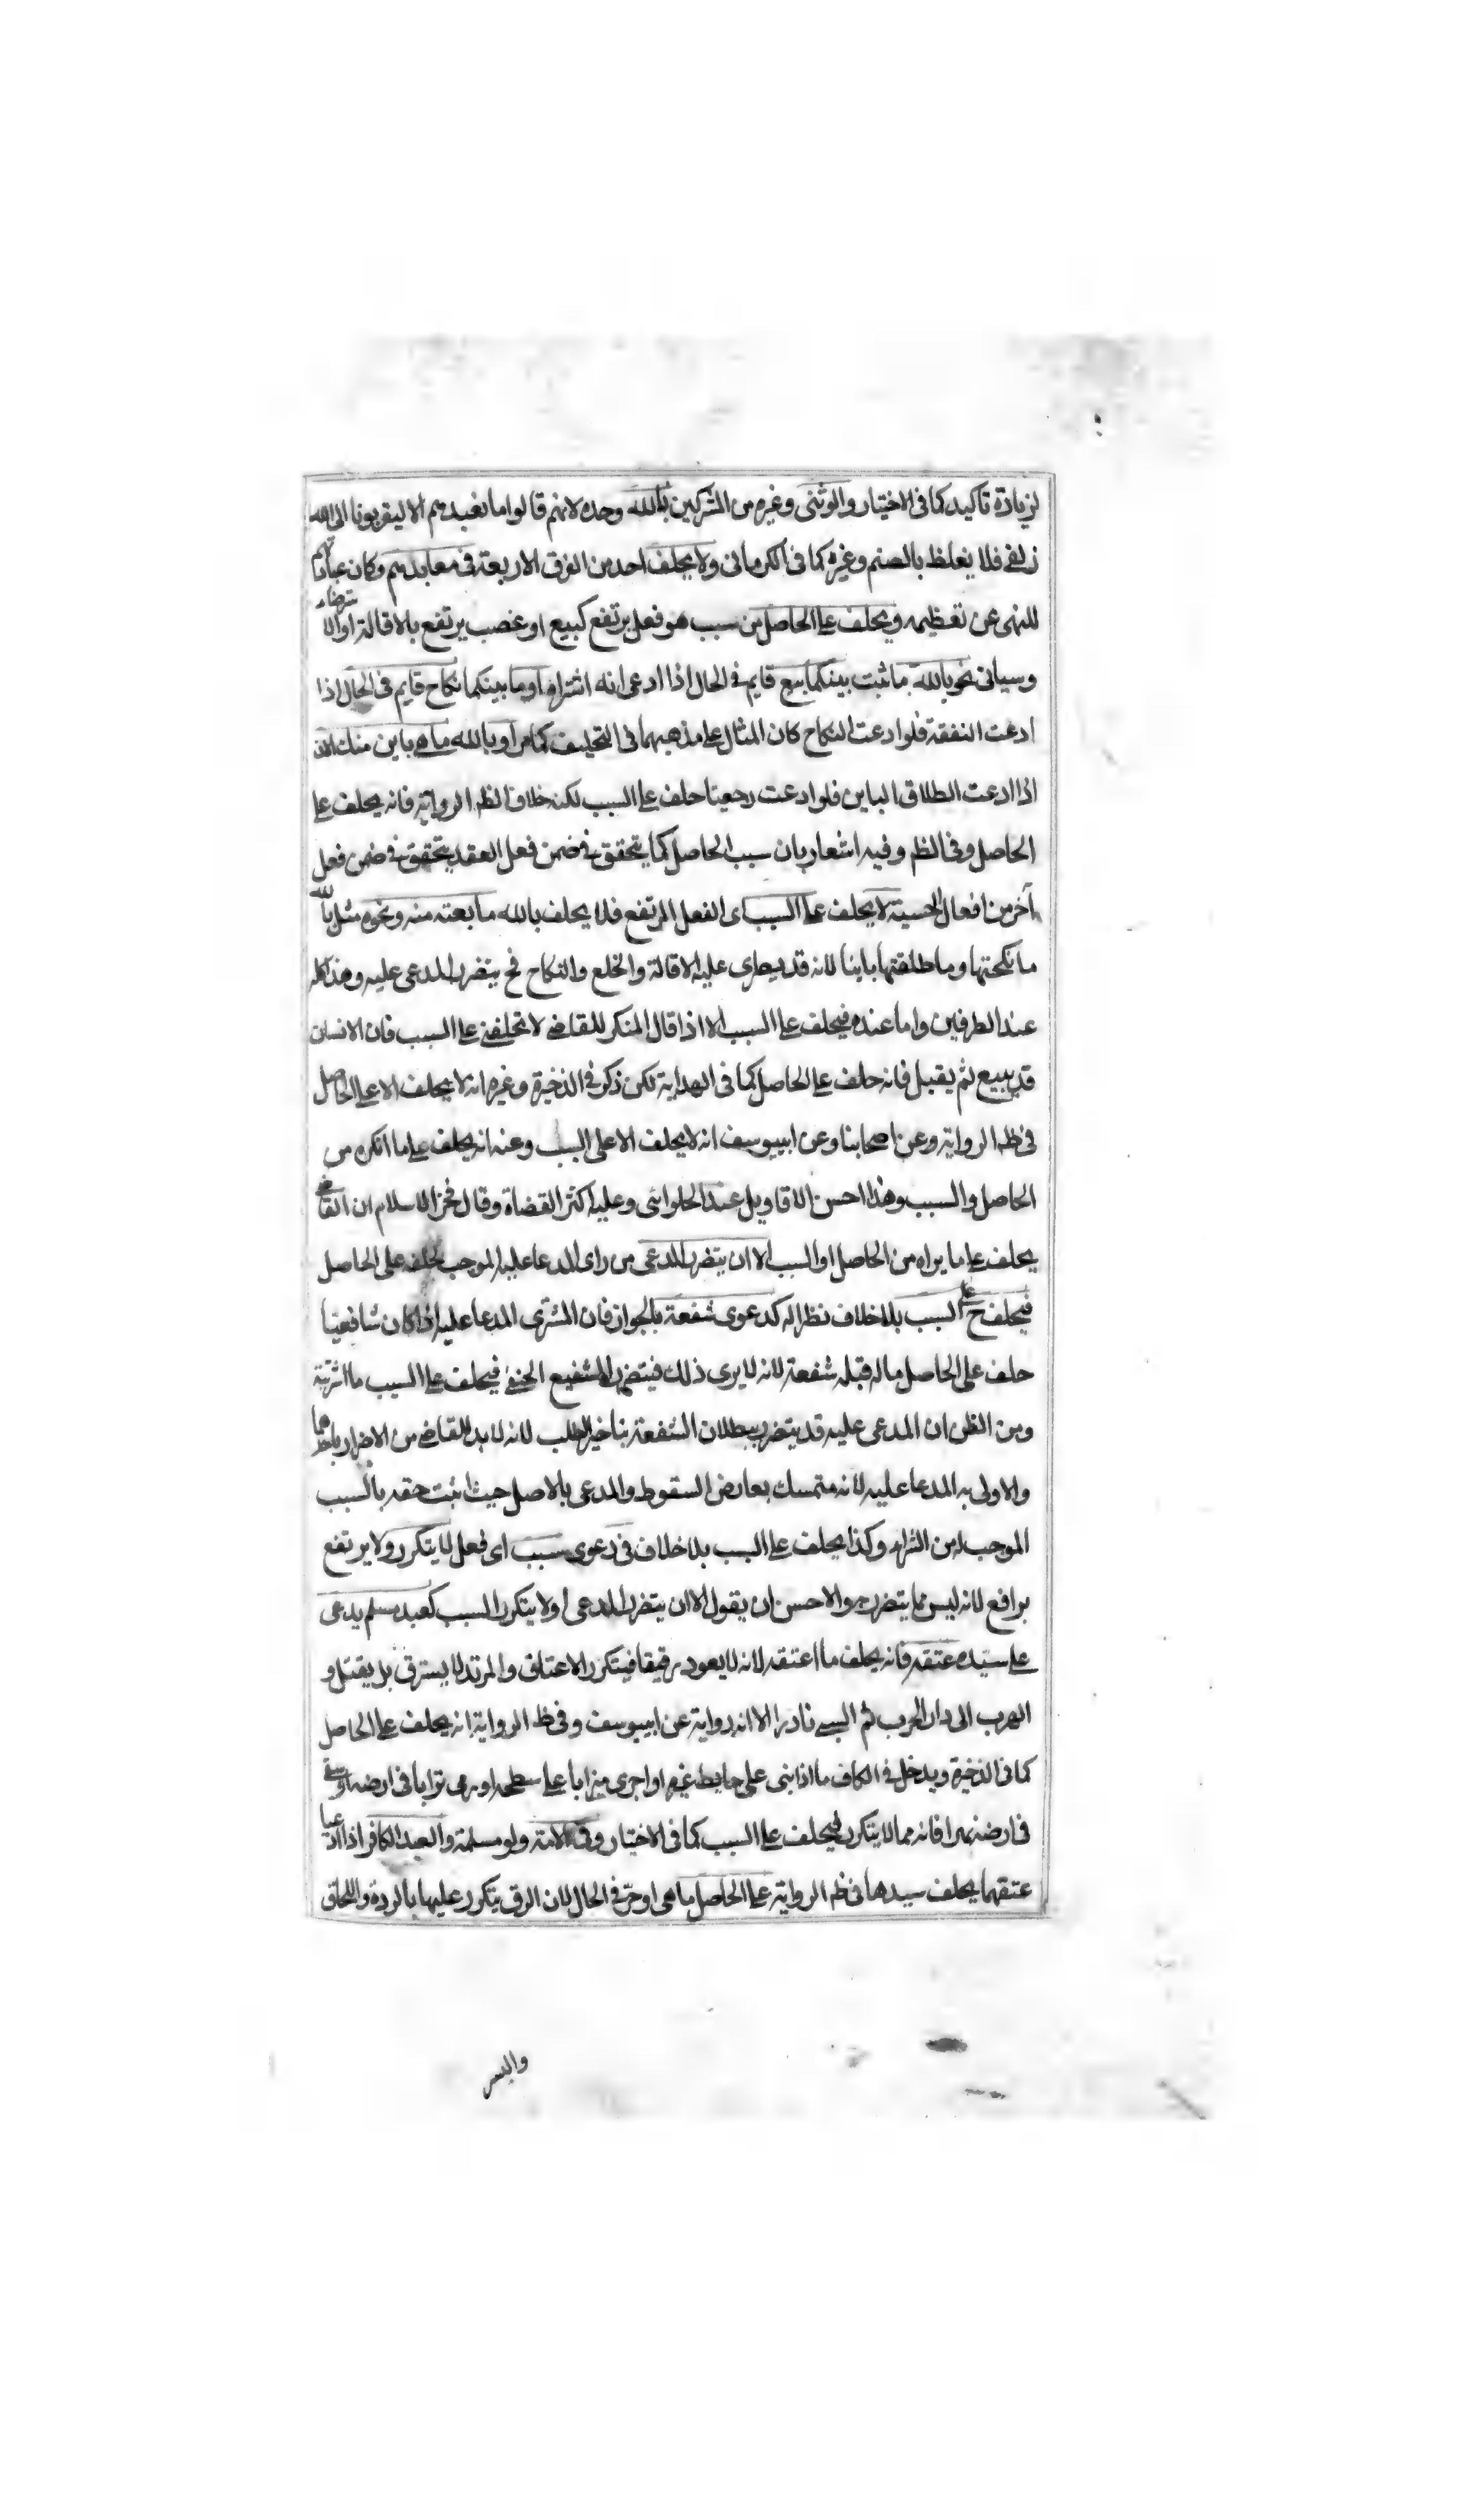 لزيادة تاكيد كما فى الاختيار والوثنى وغيره من المشركين بالله وحده لانهم قالوا ما نعبدهم الا ليقربونا الى الله
زلفى فلا يغلظ بالصنم وغيره كما فى الكرمانى ولا يحلف احد من الفرق الاربعة فى معابدهم وكان عباداتهم
للنهى عن تعظيمه ويحلف على الحاصل من سبب هو فعل يرتفع كبيع او غصب يرتفع بالاقالة او الاسترضاء
وسياتى نحو بالله ما ثبت بينكما بيع قايم فى الحال اذا ادعى انه اشتراه او ما بينكما نكاح قايم فى الحال اذا
ادعت النفقة فلو ادعت النكاح كان المثال على مذهبهما فى التحليف كما مر او بالله ما هى باين منك الان
اذا ادعت الطلاق الباين فلو ادعت رجعيا حلف على السبب لكنه خلاف الظ الرواية فانه يحلف على
الحاصل وفى الظ وفيه اشعار بان سبب الحاصل كما يتحقق فى ضمن فعل العقد يتحقق فى ضمن فعل
آخر من افعال الحسية لا يحلف على السبب اى الفعل المرتفع فلا يحلف بالله ما بعته منه ونحوه مثل بالله
ما نكحتها وما طلقتها باينا لانه قد يطرى عليه الاقالة والخلع والنكاح فح يتضرر المدعى عليه وهذا كله
عند الطرفين واما عنده فيحلف على السبب الا اذا قال المنكر للقاضى لا تحلفنى على السبب فان الانسان
قد يبيع ثم يقيل فانه حلف على الحاصل كما فى الهداية لكن ذكر فى الذخيرة وغيره انه لا يحلف الا على الحاصل
فى ظ الرواية وعن اصحابنا وعن ابيوسف انه لا يحلف الا على السبب وعنه انه يحلف على ما انكره من
الحاصل والسبب وهذا احسن الاقاويل عند الحلوائى وعليه اكثر القضاة وقال فخر الاسلام ان القاضى
يحلف على ما يراه من الحاصل او السبب الا ان يتضرر المدعى من راى المدعا عليه الموجب لحلفه على الحاصل
فيحلف ح على السبب بلا خلاف نظرا له كدعوى شفعة بالجوار فان المشترى المدعا عليه اذا كان شافعيا
حلف على الحاصل ماله قبله شفعة لانه لا يرى ذلك فيتضرر الشفيع الحنفى فيحلف على السبب ما اشتريته
ومن الظن ان المدعى عليه قد يتضرر ببطلان الشفعة بتاخير الطلب لانه لا بد للقاضى من الاضرار باحدهما
والاولى به المدعا عليه لانه متمسك بعارض السقوط والمدعى بالاصل حيث اثبت حقه بالسبب
الموجب له من الشراء وكذا يحلف على السبب بلا خلاف فى دعوى سبب اى فعل لا يتكرر ولا يرتفع
برافع لانه ليس مما يتضرر به والاحسن ان يقول الا ان يتضرر المدعى او لا يتكرر السبب كعبد مسلم يدعى
على سيده عتقه فانه يحلف ما اعتقه لانه لا يعود رقيقا فيتكرر الاعتاق والمرتد لا يسترق بل يقتل و
الهرب الى دار الحرب ثم السبى نادر الا انه رواية عن ابيوسف وفى ظ الرواية انه يحلف على الحاصل
كما فى الذخيرة ويدخل فى الكاف ما اذا بنى على حايط غيره او اجرى ميزابا على سطحه او رمى ترابا فى ارضه او شق
فى ارضه نهرا فانه مما لا يتكرر فيحلف على السبب كما فى الاختيار وفى الامة ولو مسلمة والعبد الكافر اذا ادعيا
عتقهما يحلف سيدها فى ظ الرواية على الحاصل ما هى او حر فى الحال لان الرق يتكرر عليها بالردة واللحاق